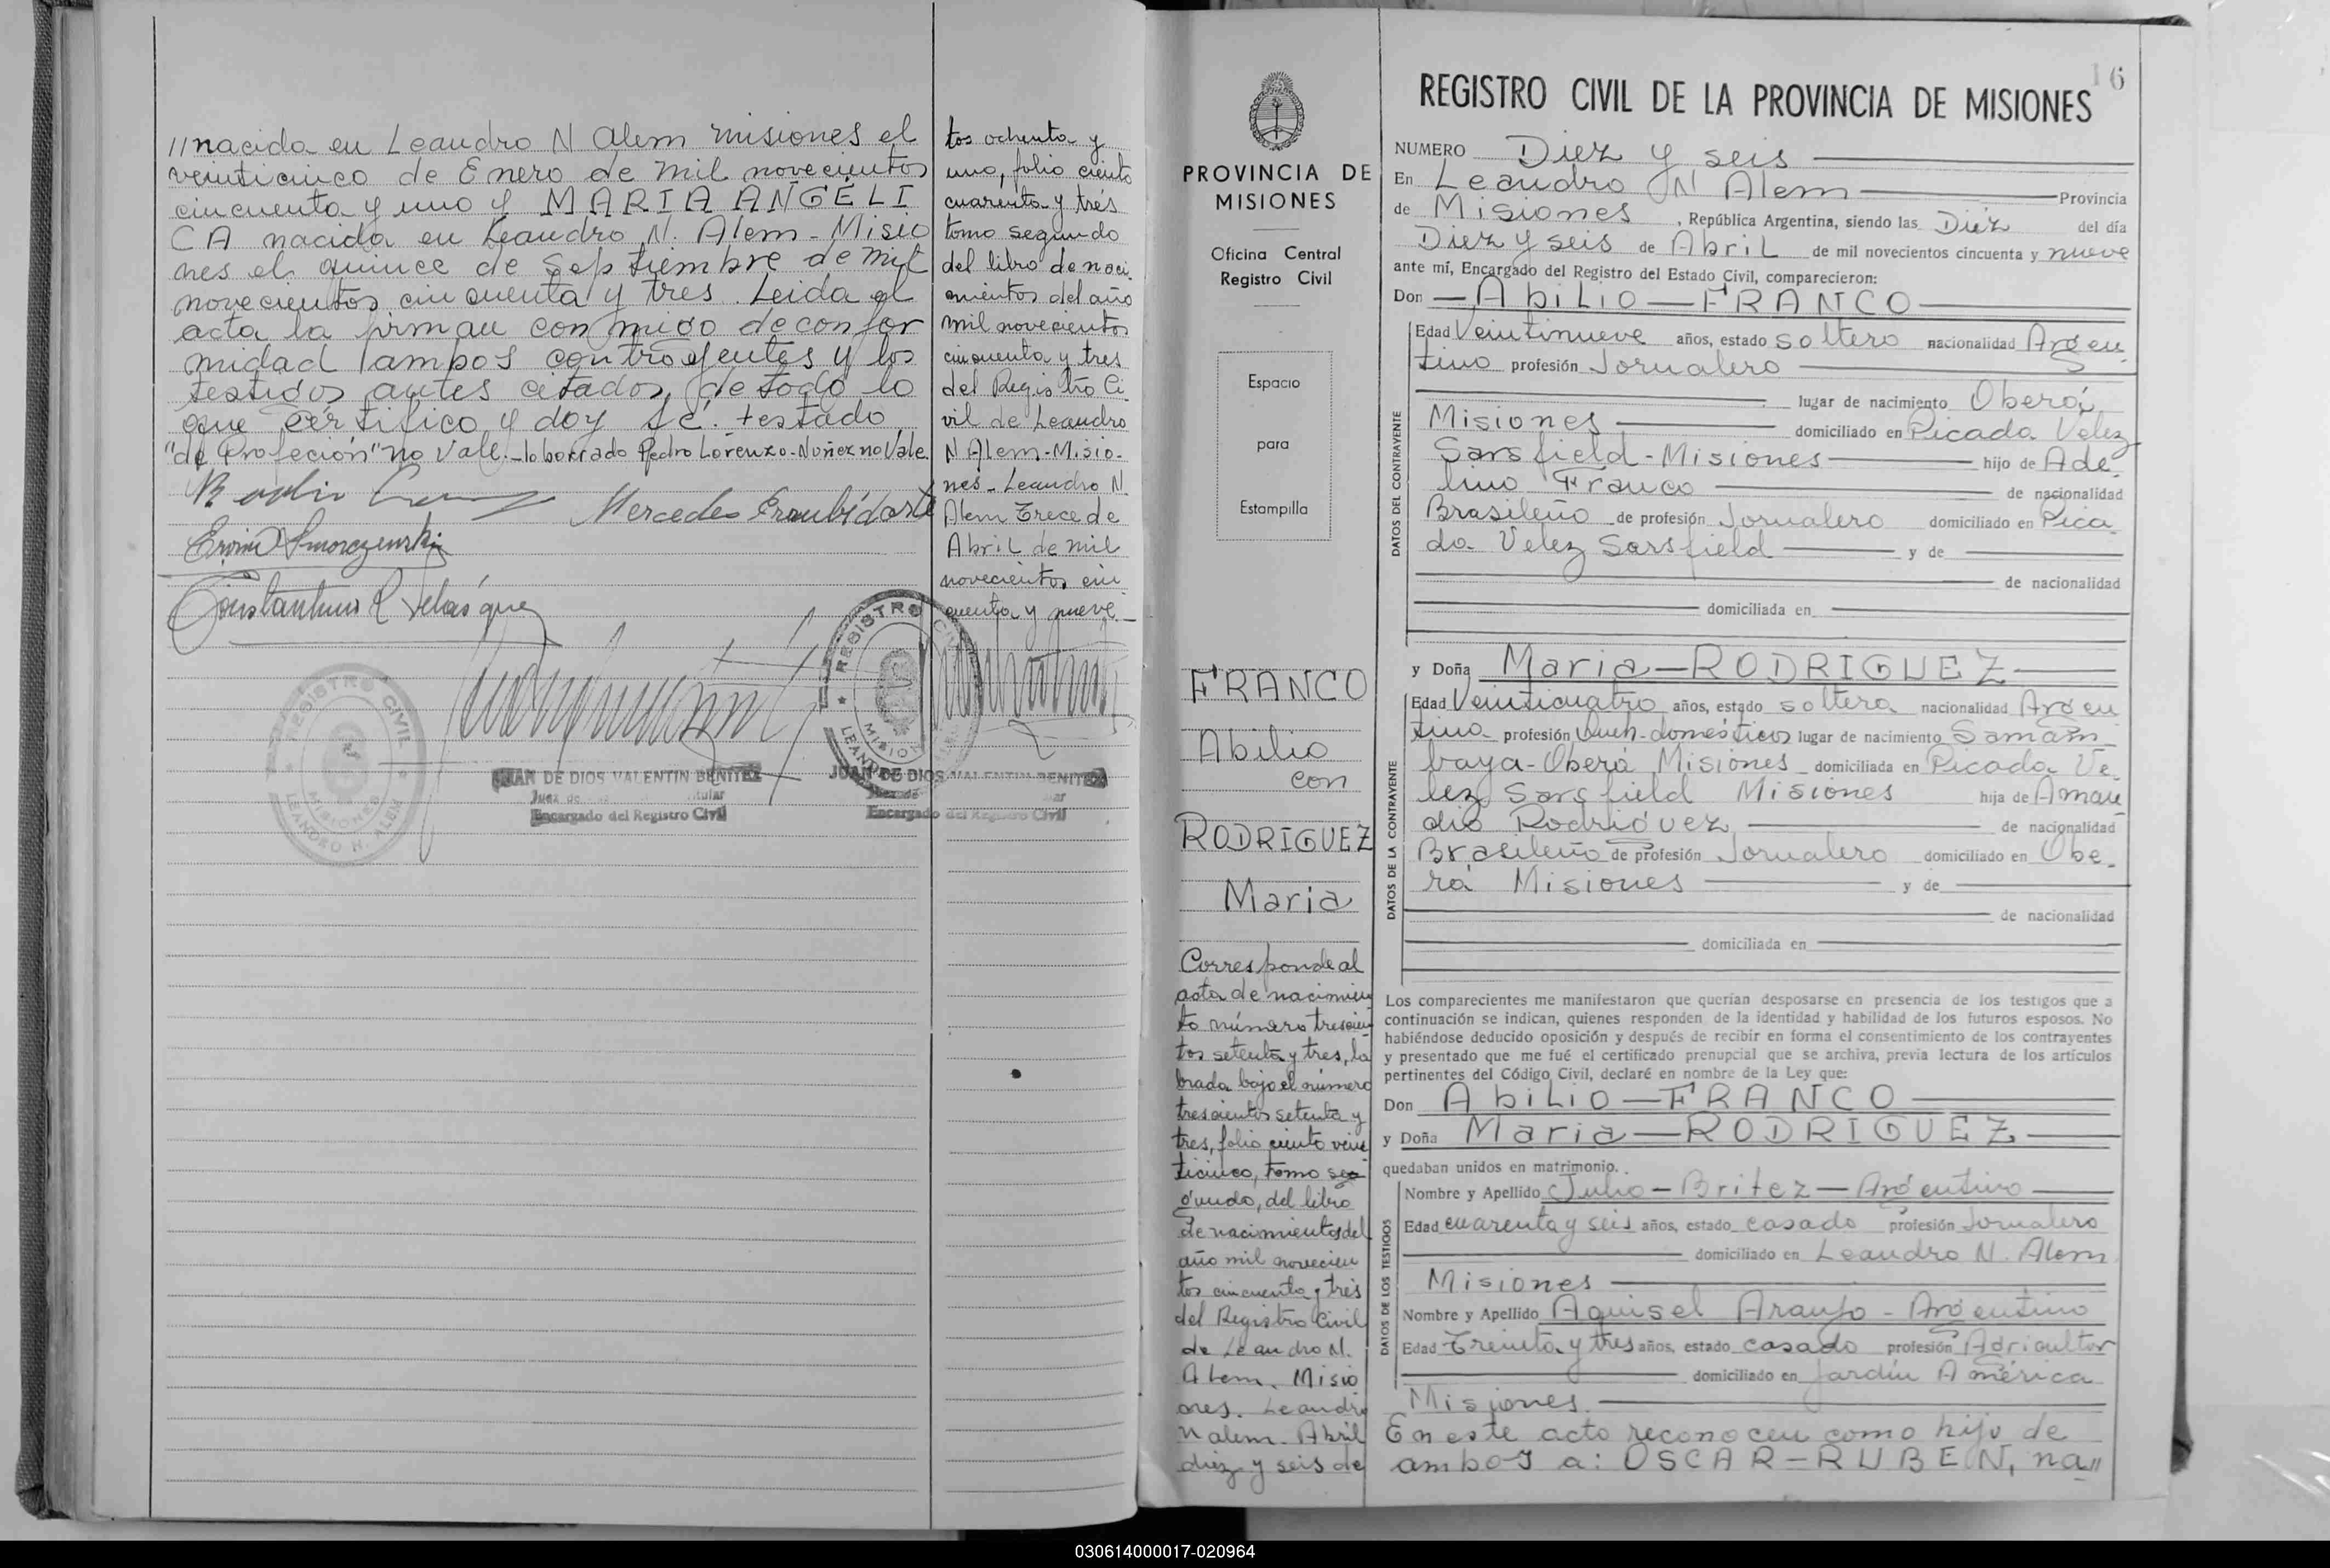 //nacida en Leandro N Alem misiones el
veinticinco de Enero de mil novecientos
cincuenta y uno y MARIA ANGELI
CA nacida en Leandro N. Alem-Misio
nes el quince de Septiembre de mil
novecientos cincuenta y tres. Leida el
acta la firman con migo de confor
midad ambos contrayentes y los
testigos antes citados, de todo lo
que certifico y doy fé. testado
"de Profeción" no vale.-lo borrado Pedro Lorenzo-Nuñez no Vale.
Mercedes
tos ochenta y
uno, folio ciento
cuarenta y tres
tomo segundo
del libro de naci
mientos del año
mil novecientos
cincuenta y tres
del Registro Ci-
vil de Leandro
N Alem-Misio-
nes-Leandro N.
Alem Trece de
Abril de mil
novecientos cin
cuenta y nueve.-
REGISTRO CIVIL
MISIONES
LEANDRO N. ALEM
JUAN DE DIOS VALENTIN BENITEZ
Encargado del Registro Civil
JUAN DE DIOS VALENTIN BENITEZ
Encargado del Registro Civil
PROVINCIA DE
MISIONES
Oficina Central
Registro Civil
Espacio
para
Estampilla
FRANCO
Abilio
con
RODRIGUEZ
Maria
Corresponde al
acta de nacimien
to número trescien
tos setenta y tres, la
brada bajo el número
trescientos setenta y
tres, folio ciento vein
ticinco, tomo se
gundo, del libro
de nacimientos del
año mil novecien
tos cincuenta y tres
del Registro Civil
de Leandro N.
Alem. Misio
nes. Leandro
N alem. Abril
diez y seis de
16
REGISTRO CIVIL DE LA PROVINCIA DE MISIONES
NUMERO Diez y seis
En Leandro N Alem Provincia
de Misiones, República Argentina, siendo las Diez del día
Diez y seis de Abril de mil novecientos cincuenta y nueve
ante mí, Encargado del Registro del Estado Civil, comparecieron:
Don - Abilio - FRANCO
DATOS DEL CONTRAYENTE
Edad Veintinueve años, estado soltero nacionalidad Argen
tino profesión Jornalero
lugar de nacimiento Oberá
Misiones domiciliado en Picada Velez
Sarsfield-Misiones hijo de Ade
lino Franco de nacionalidad
Brasileño de profesión Jornalero domiciliado en Pica
da Velez Sarsfield y de
de nacionalidad
domiciliada en
y Doña Maria - RODRIGUEZ
DATOS DE LA CONTRAYENTE
Edad Veinticuatro años, estado soltera nacionalidad Argen
tina profesión Queh-domésticos lugar de nacimiento Samam
baya-Oberá Misiones domiciliada en Picada Ve
lez Sarsfield Misiones hija de Aman
dio Rodriguez de nacionalidad
Brasileño de profesión Jornalero domiciliado en Obe-
rá Misiones y de
de nacionalidad
domiciliada en
Los comparecientes me manifestaron que querían desposarse en presencia de los testigos que a
continuación se indican, quienes responden de la identidad y habilidad de los futuros esposos. No
habiéndose deducido oposición y después de recibir en forma el consentimiento de los contrayentes
y presentado que me fué el certificado prenupcial que se archiva, previa lectura de los artículos
pertinentes del Código Civil, declaré en nombre de la Ley que:
Don Abilio - FRANCO
y Doña Maria - RODRIGUEZ
quedaban unidos en matrimonio.
DATOS DE LOS TESTIGOS
Nombre y Apellido Julio - Britez - Argentino
Edad cuarenta y seis años, estado casado profesión Jornalero
domiciliado en Leandro N. Alem
Misiones
Nombre y Apellido Aguisel Araujo - Argentino
Edad Treinta y tres años, estado casado profesión Agricultor
domiciliado en Jardín América
Misiones
En este acto reconocen como hijo de
ambos a: OSCAR-RUBEN, na//
030614000017-020964